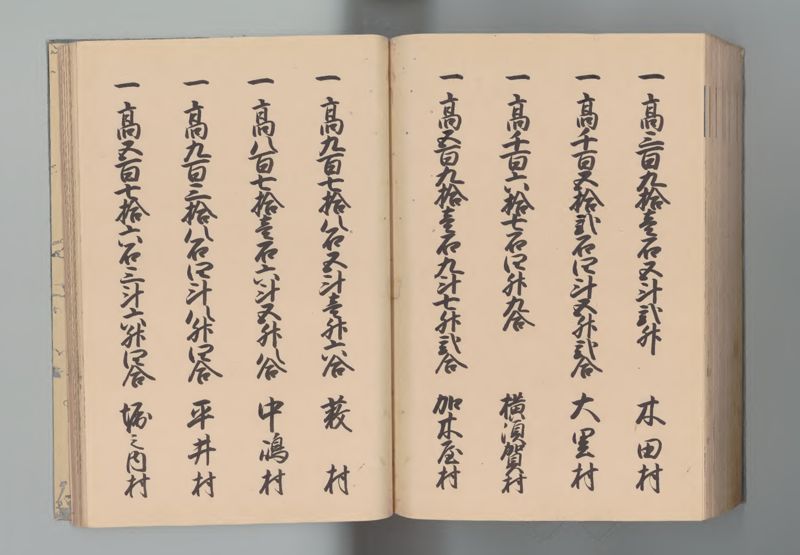 一高三百九拾壱石五斗弐升 木田村
一高千百五拾弐石四斗五升弐合 大里村
一高千百六拾七石四升九合 横須賀村
一高五百九拾壱石九斗七升弐合 加木屋村
一高九百七拾八石五斗壱升六合 薮村
一高八百七拾壱石六斗五升八合 中嶋村
一高九百二拾八石四斗八升四合 平井村
一高五百七拾六石三斗六升四合 堀之内村